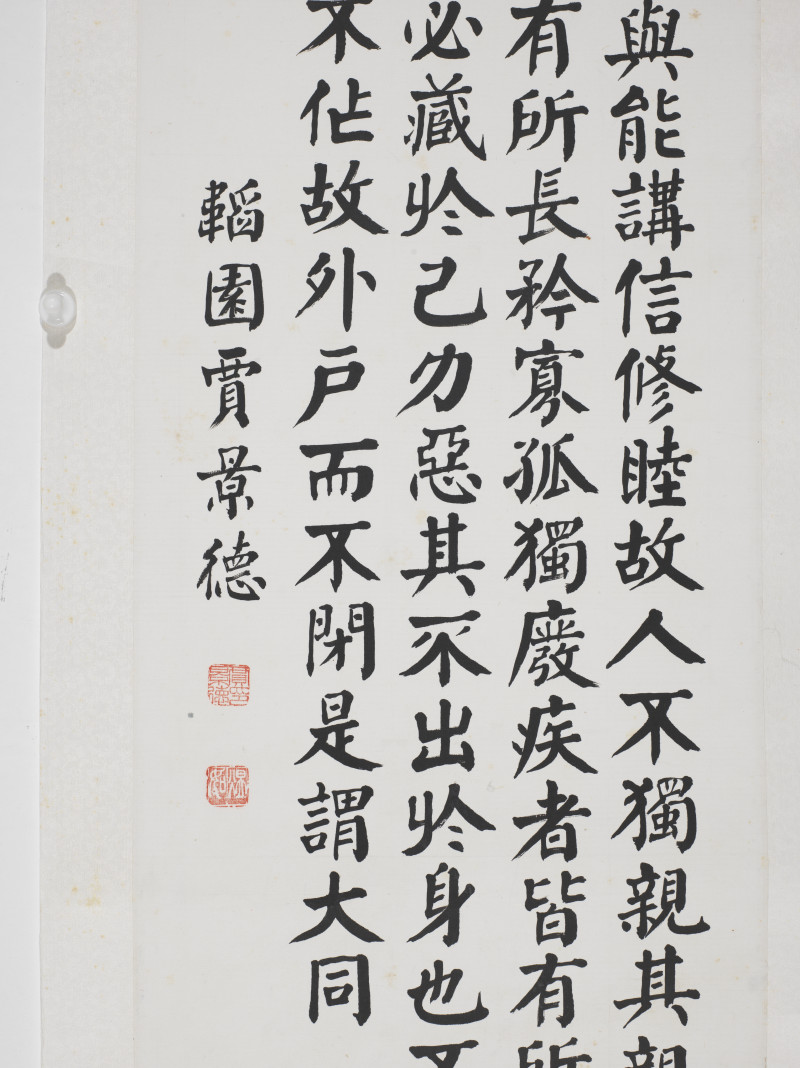 與能講信修睦故人不獨親其親
有所長矜寡孤獨廢疾者皆有所
必藏於己力惡其不出於身也不
不作故外戶而不閉是謂大同
韜園賈景德